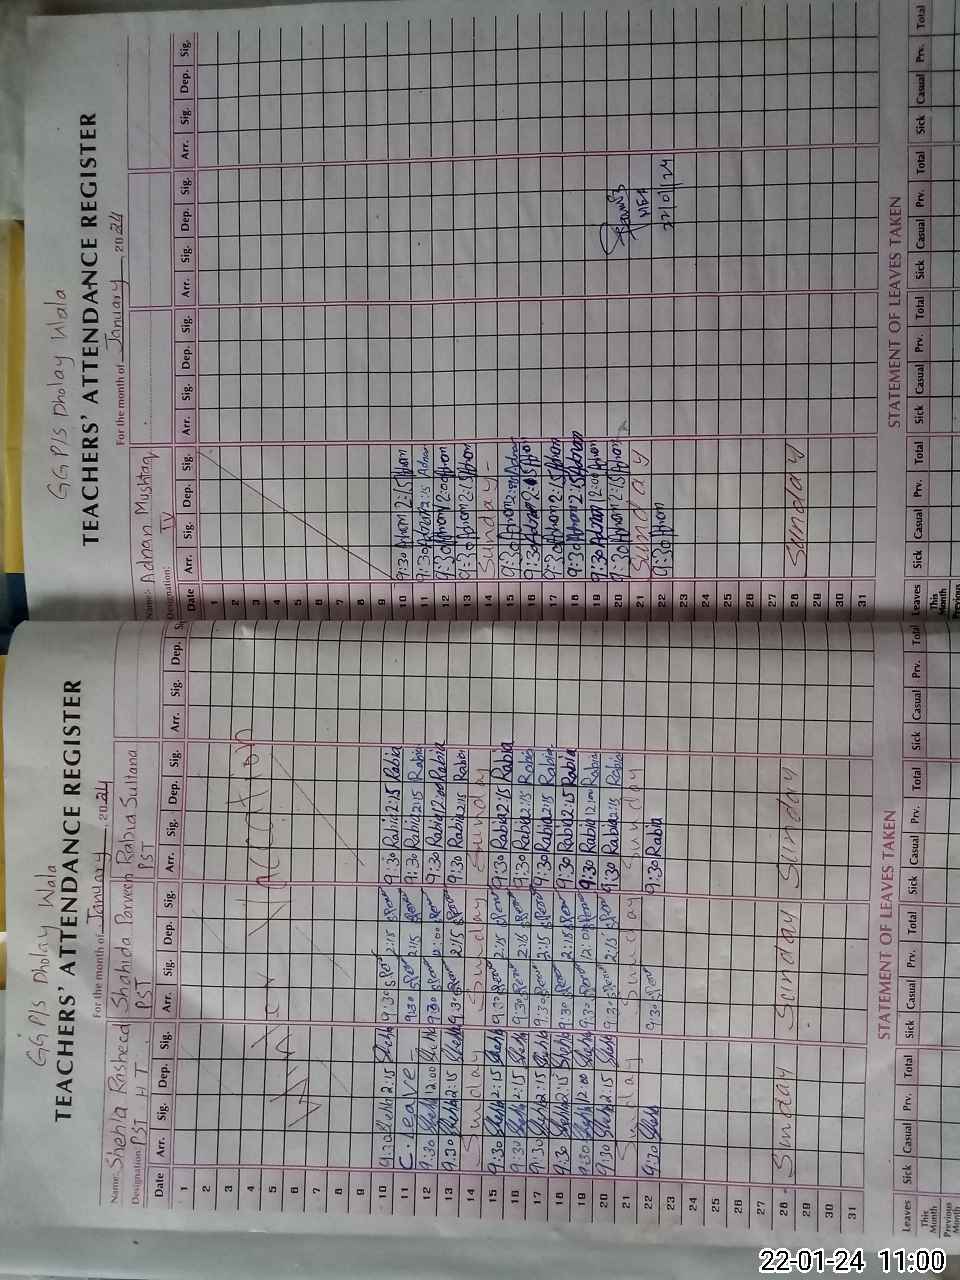 GGP/S Dholay Wala
TEACHERS' ATTENDANCE REGISTER
For the month of January, 2024
Name:- Shehla Rasheed Shahida Parveen Rabia Sultana
Designation: PST HT PST PST
Date Arr. Sig. Dep. Sig. Arr. Sig. Dep. Sig. Arr. Sig. Dep. Sig. Arr. Sig. Dep. Sig.
1
2
3
4
5
6
7
8
9
Winter Vaccation
10 9:30 Shehla 2:15 Shehla 9:30 2:15 9:30 Rabia 2:15 Rabia
11 C. Leave 9:30 2:15 9:30 Rabia 2:15 Rabia
12 9:30 Shehla 12:00 Shehla 9:30 12:00 9:30 Rabia 12:00 Rabia
13 9:30 Shehla 2:15 Shehla 9:30 2:15 9:30 Rabia 2:15 Rabia
14 Sunday Sunday Sunday
15 9:30 Shehla 2:15 Shehla 9:30 2:15 9:30 Rabia 2:15 Rabia
16 9:30 Shehla 2:15 Shehla 9:30 2:15 9:30 Rabia 2:15 Rabia
17 9:30 Shehla 2:15 Shehla 9:30 2:15 9:30 Rabia 2:15 Rabia
18 9:30 Shehla 2:15 Shehla 9:30 2:15 9:30 Rabia 2:15 Rabia
19 9:30 Shehla 12:00 Shehla 9:30 12:00 9:30 Rabia 12:00 Rabia
20 9:30 Shehla 2:15 Shehla 9:30 2:15 9:30 Rabia 2:15 Rabia
21 Sunday Sunday Sunday
22 9:30 Shehla 9:30 9:30 Rabia
23
24
25
26
27
28 Sunday Sunday Sunday
29
30
31
STATEMENT OF LEAVES TAKEN
Leaves Sick Casual Prv. Total Sick Casual Prv. Total Sick Casual Prv. Total Sick Casual Prv. Total
This Month
Previous Month
GGP/S Dholay Wala
TEACHERS' ATTENDANCE REGISTER
For the month of January, 2024
Name:- Adnan Mushtaq
Designation: IV
Date Arr. Sig. Dep. Sig. Arr. Sig. Dep. Sig. Arr. Sig. Dep. Sig. Arr. Sig. Dep. Sig.
1
2
3
4
5
6
7
8
9
10 9:30 Adnan 2:15 Adnan
11 9:30 Adnan 2:15 Adnan
12 9:30 Adnan 12:00 Adnan
13 9:30 Adnan 2:15 Adnan
14 Sunday -
15 9:30 Adnan 2:15 Adnan
16 9:30 Adnan 2:15 Adnan
17 9:30 Adnan 2:15 Adnan
18 9:30 Adnan 2:15 Adnan
19 9:30 Adnan 12:00 Adnan
20 9:30 Adnan 2:15 Adnan
21 Sunday
MEA
22 9:30 Adnan 22/01/24
23
24
25
26
27
28 Sunday
29
30
31
STATEMENT OF LEAVES TAKEN
Leaves Sick Casual Prv. Total Sick Casual Prv. Total Sick Casual Prv. Total Sick Casual Prv. Total
This Month
Previous
22-01-24 11:00